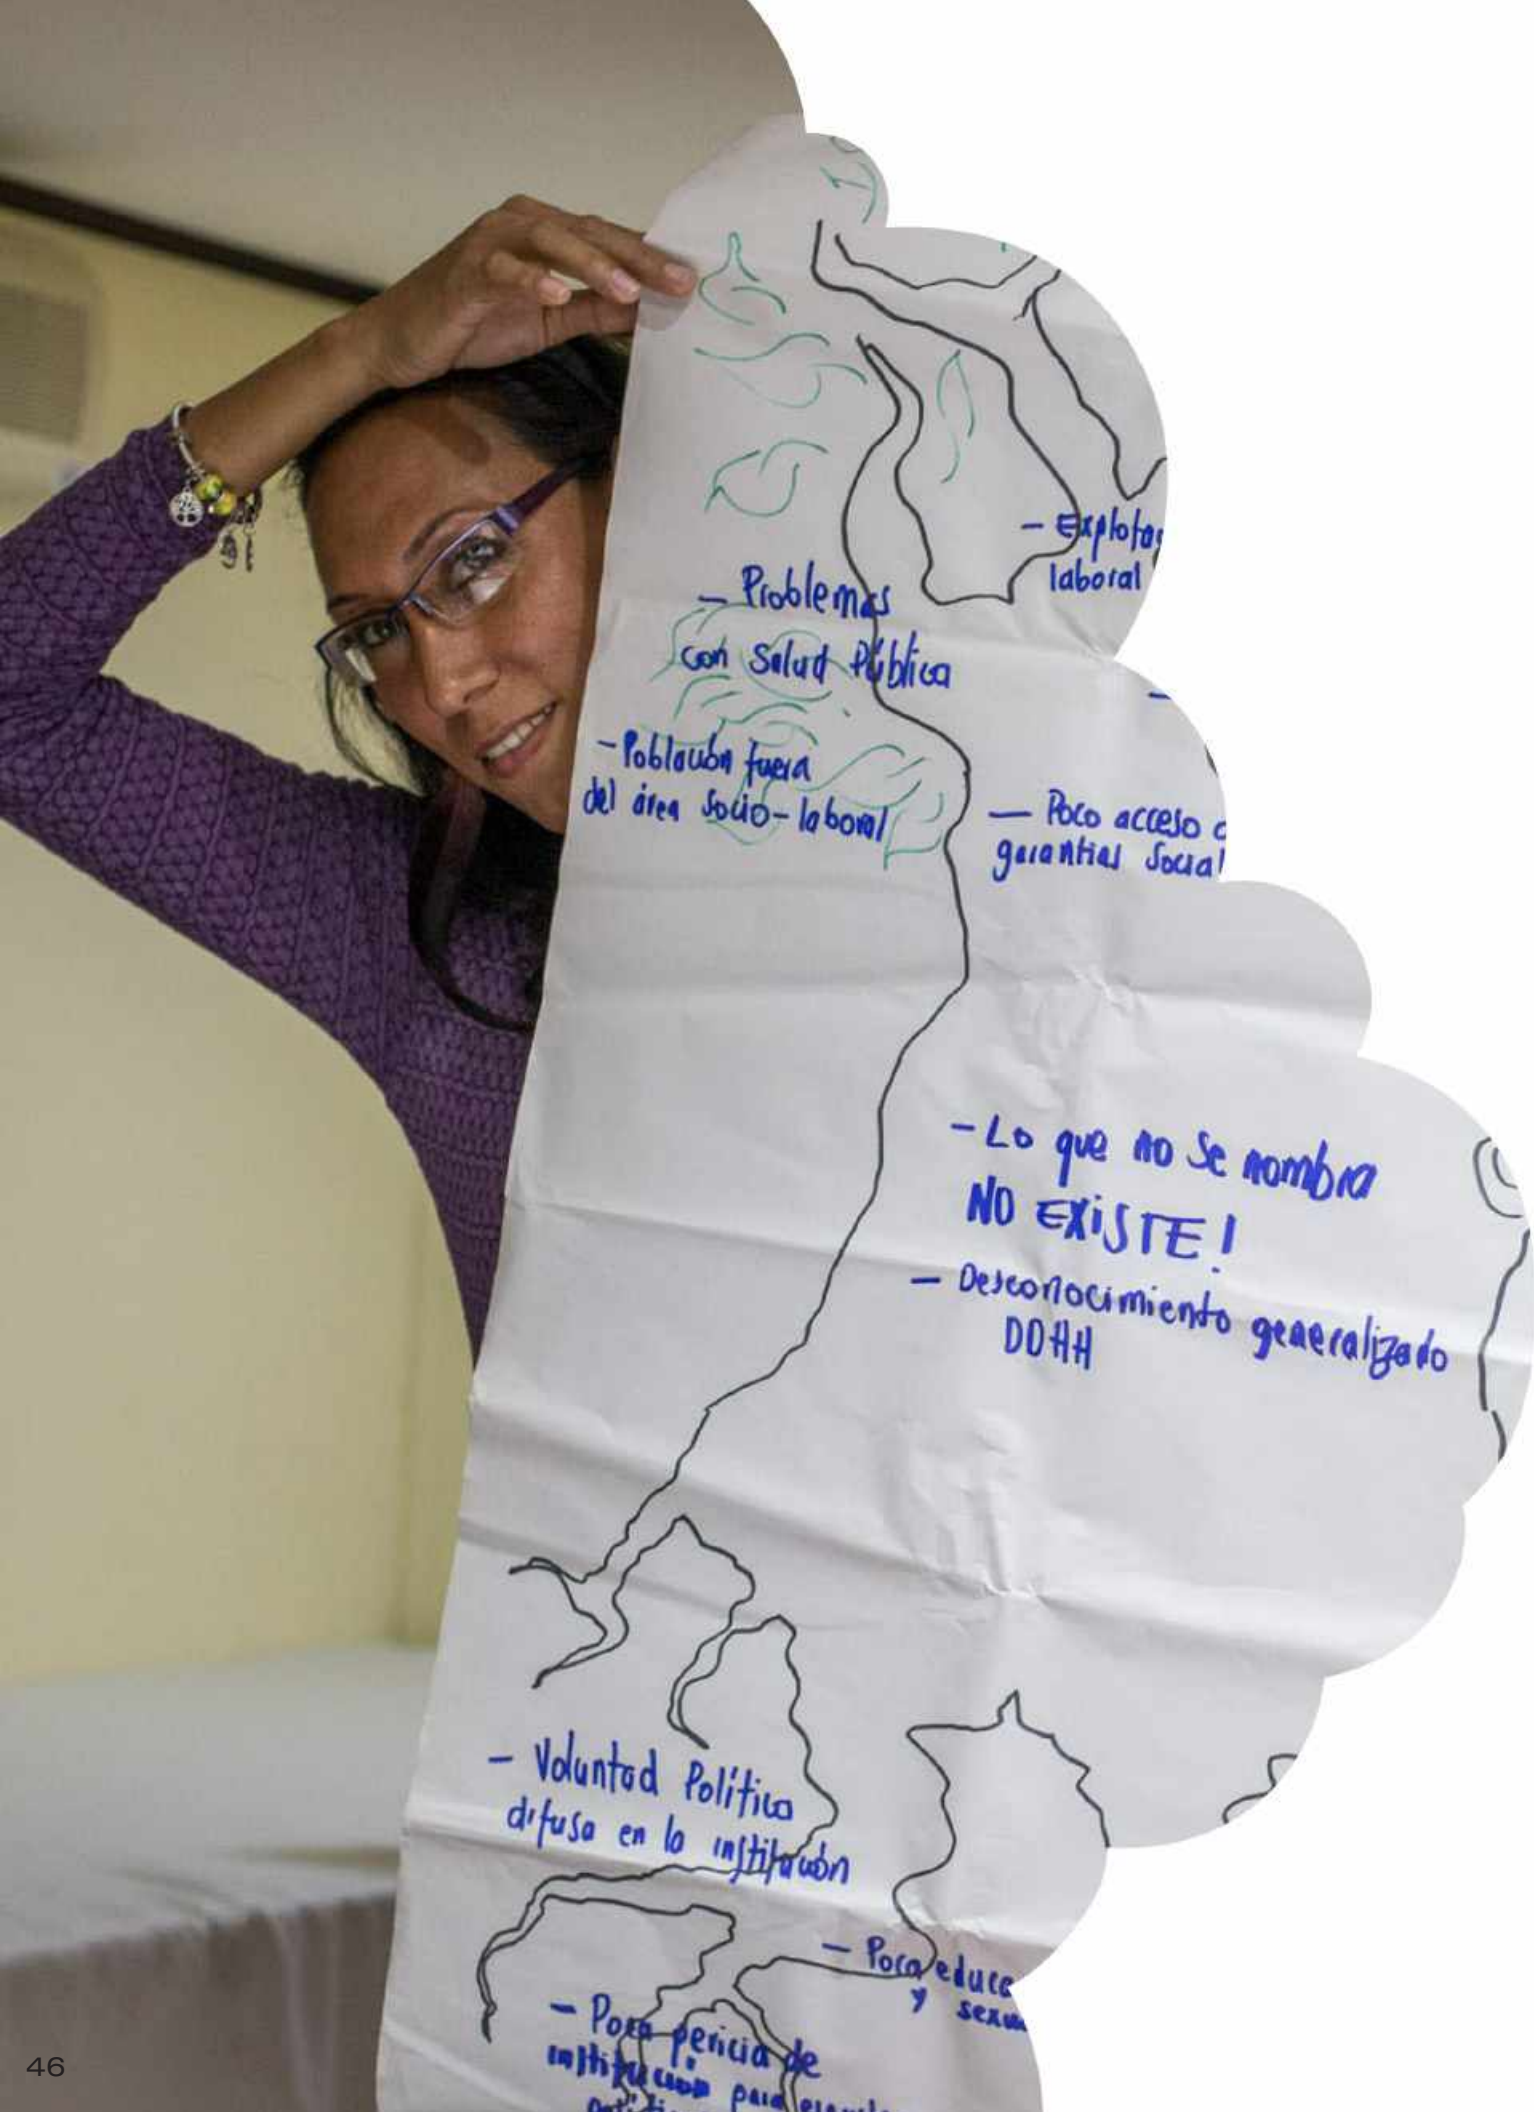 - Explota
laboral
- Problemas
con Salud Pública
- Población fuera
del área socio-laboral
- Poco acceso a
garantías social
- Lo que no se nombra
NO EXISTE!
- Desconocimiento generalizado
DDHH
- Voluntad Política
difusa en la institución
- Poca educa
y sexu
- Poca pericia de
institución para
46